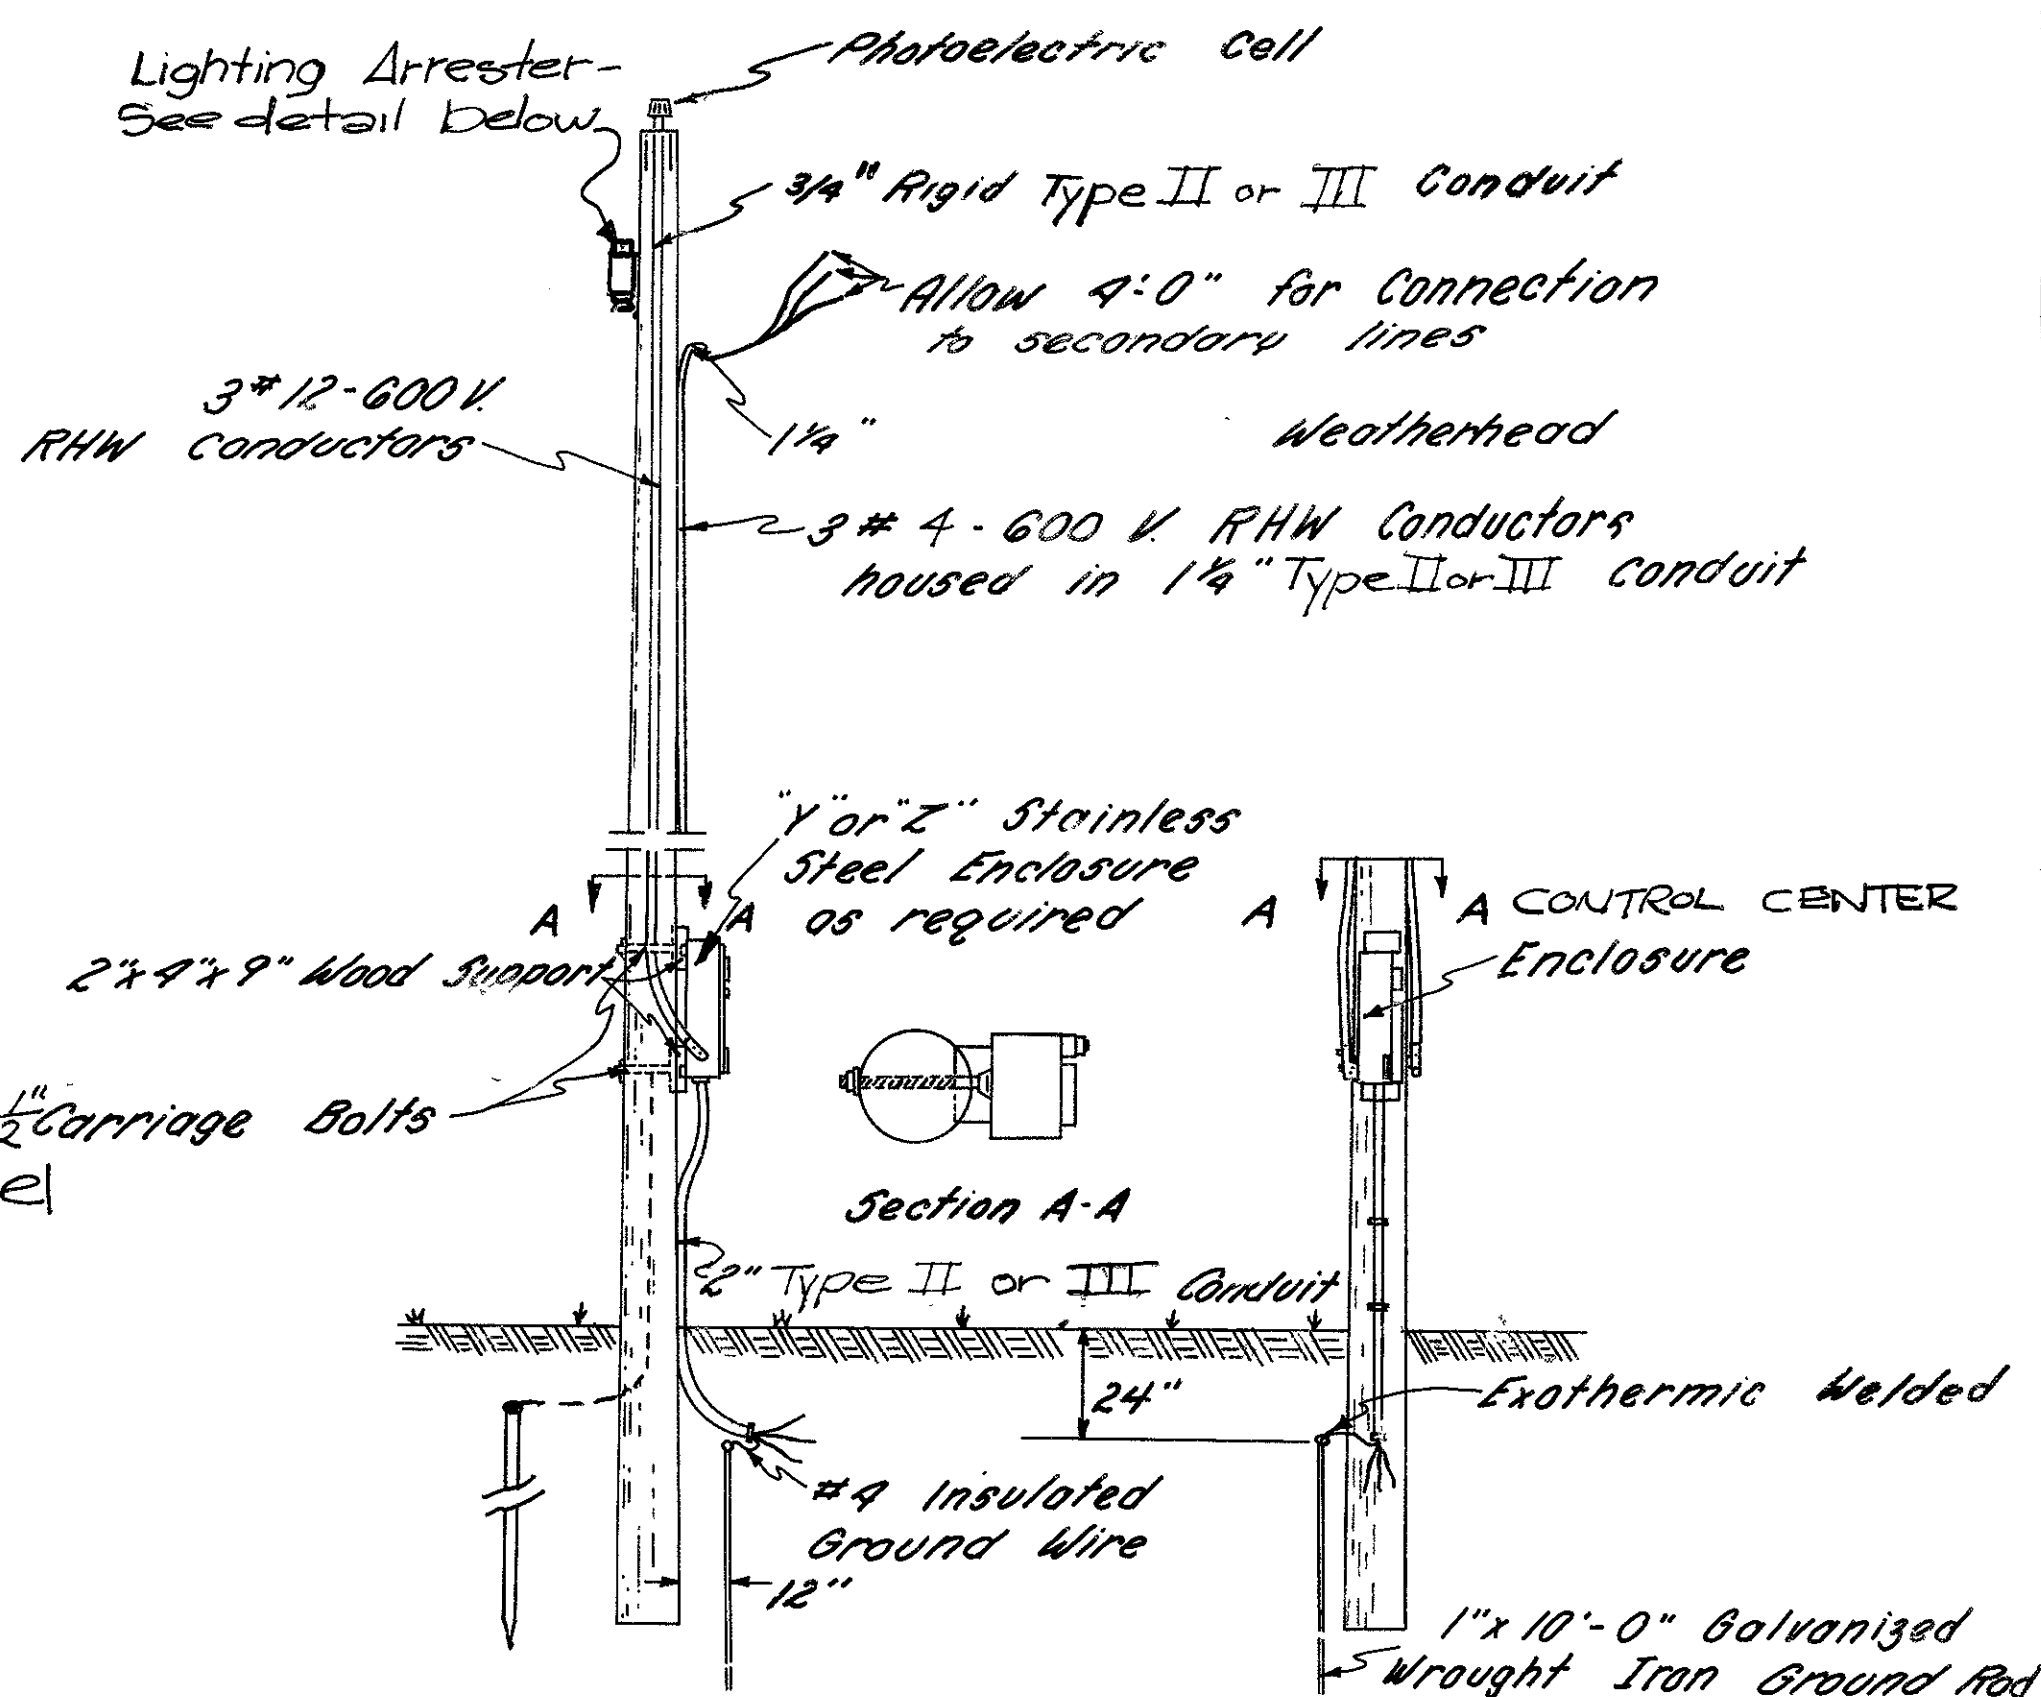 Lighting Arrester-
See detail below
Photoelectric Cell
3/4" Rigid Type II or III Conduit
Allow 4'-0" for Connection
to secondary lines
3 # 12-600 V.
RHW Conductors
1 1/4" Weatherhead
3 # 4 - 600 V. RHW Conductors
housed in 1 1/4" Type II or III Conduit
"Y" or "Z" Stainless
Steel Enclosure
as required
A A
A A
CONTROL CENTER
Enclosure
2"x4"x9" Wood Support
1/2" Carriage Bolts
el
Section A-A
2" Type II or III Conduit
24"
Exothermic Welded
#4 Insulated
Ground Wire
12"
1"x 10'-0" Galvanized
Wrought Iron Ground Rod